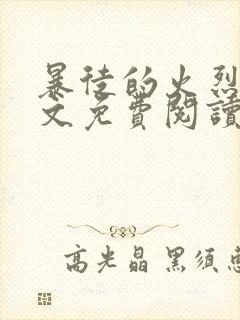 暴徒的火烈
文免費閱讀
高光晶 黑須